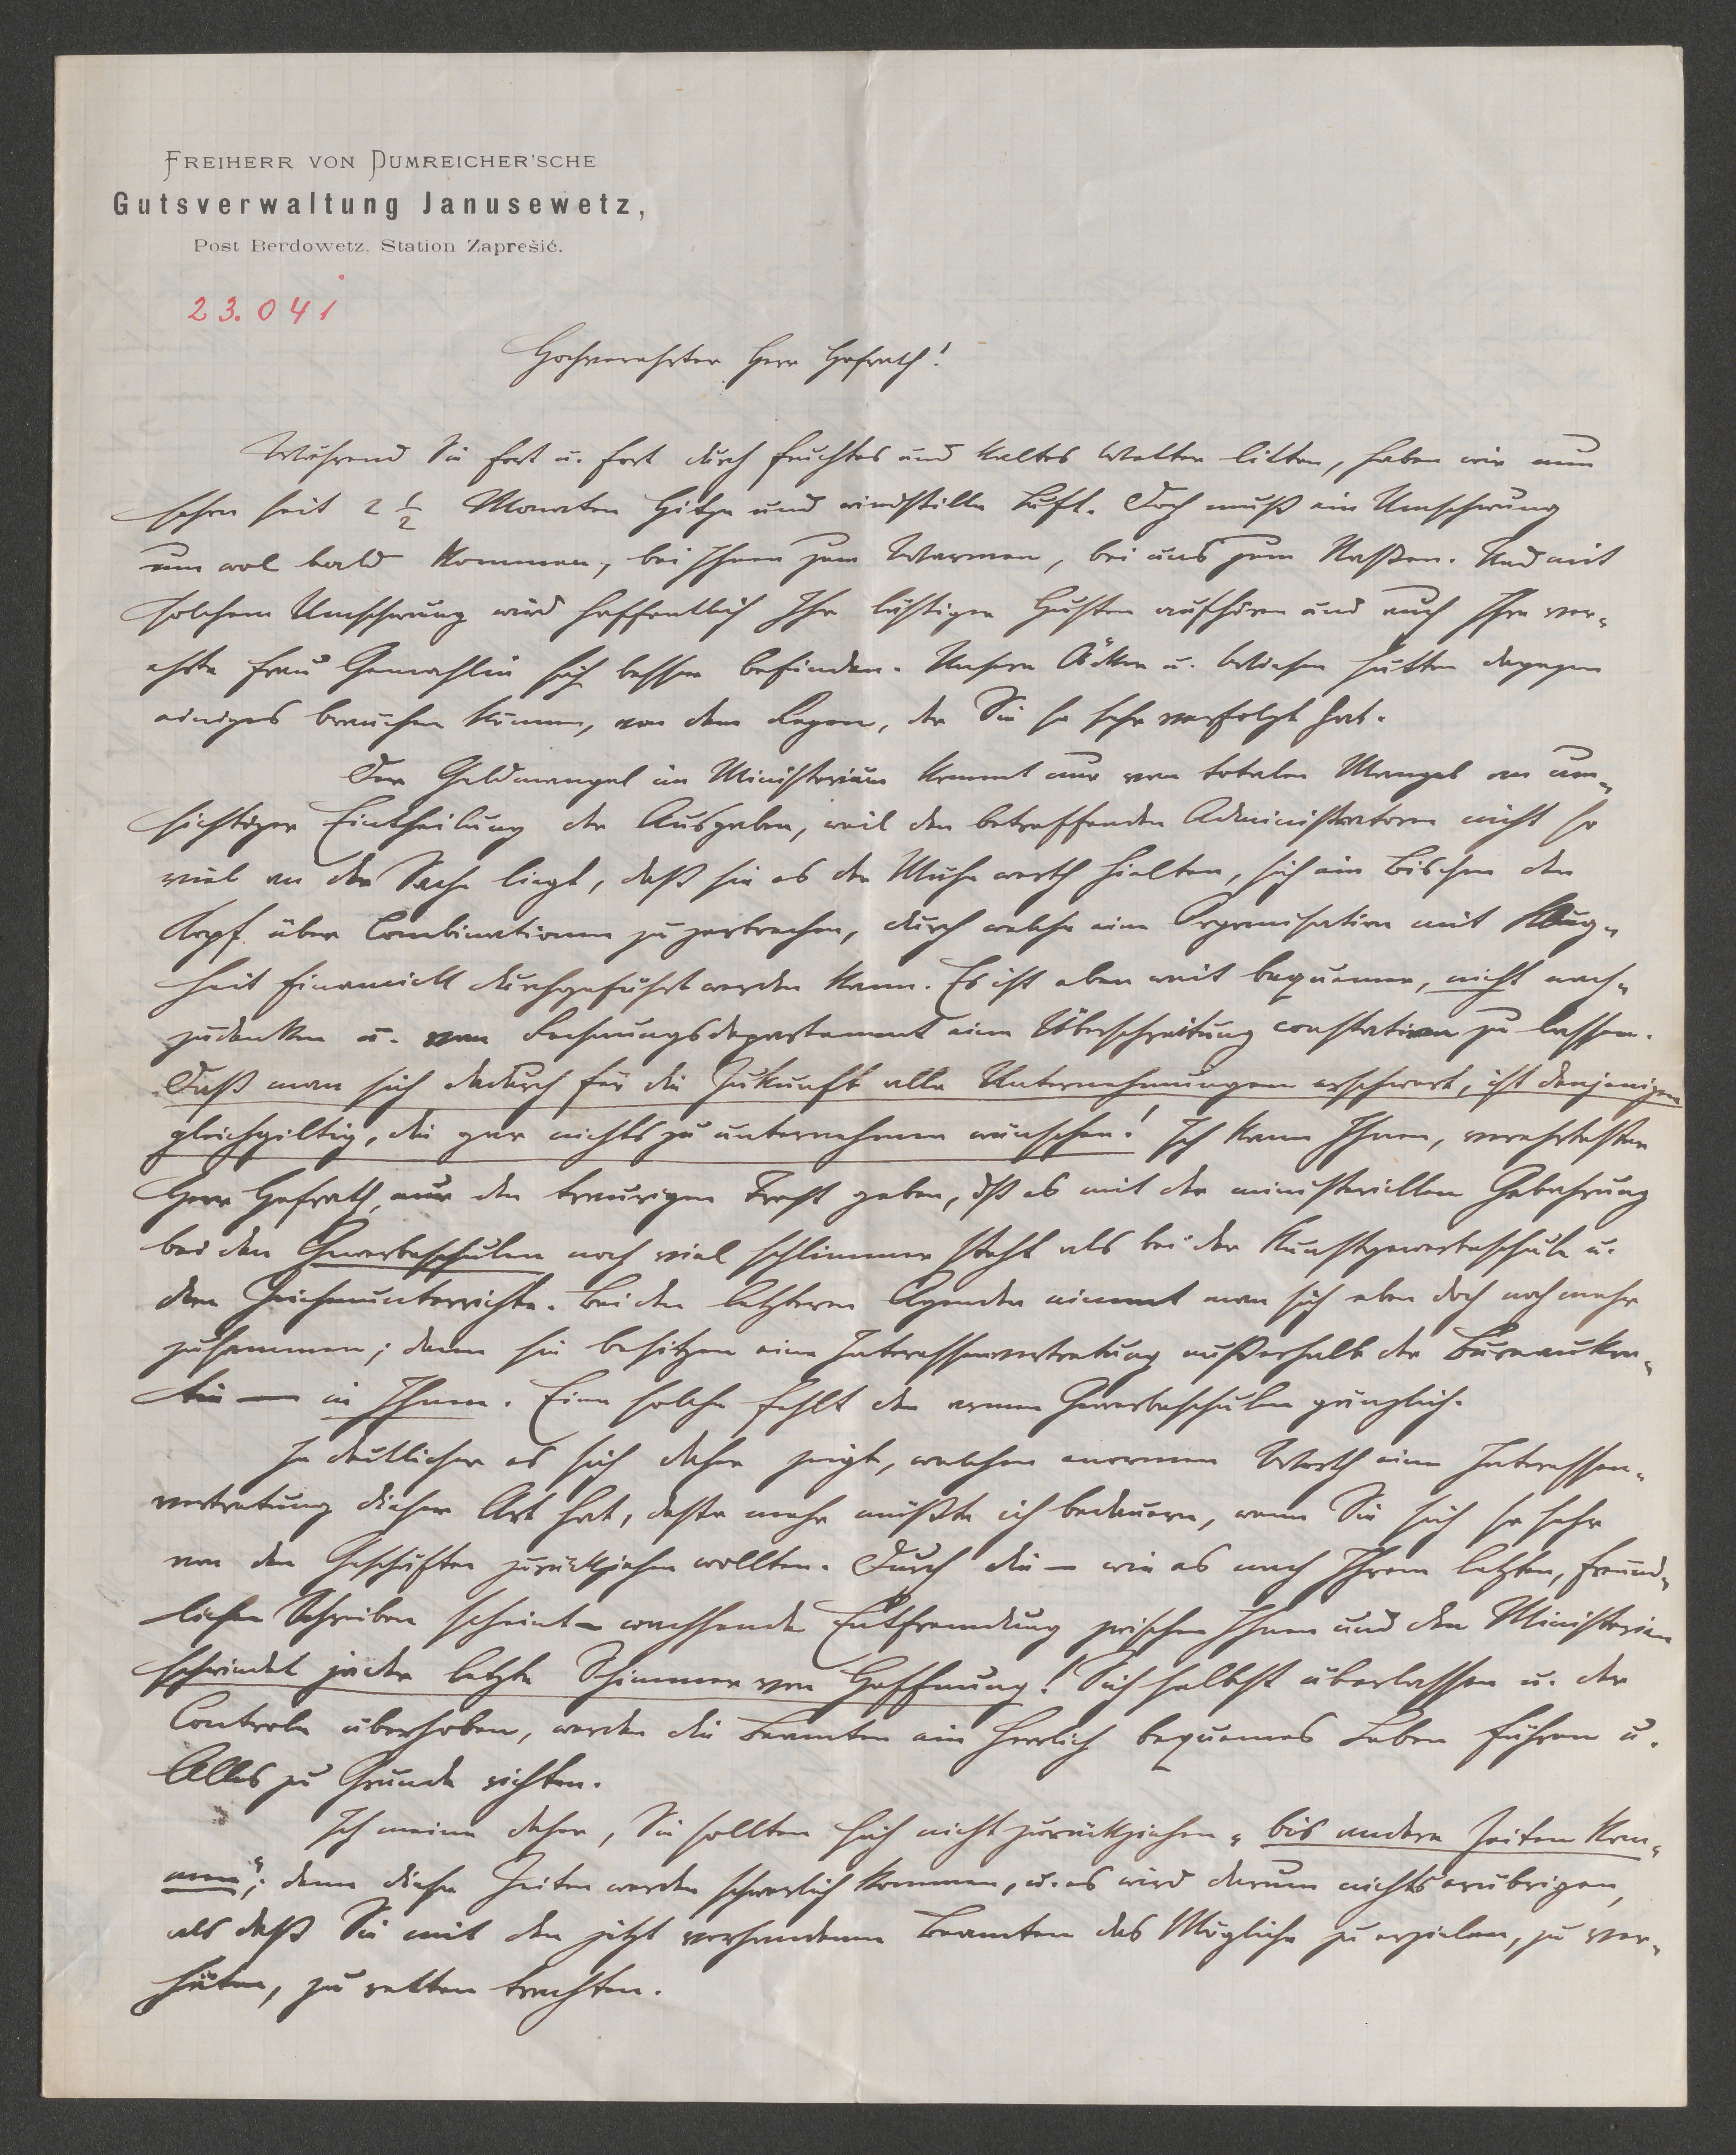 FREIHERR VON DUMREICHER'SCHE
Gutsverwaltung Janusewetz,
Post Berdowetz, Station Zaprešić.
23.041
Hochverehrter Herr Hofrath!
Während Sie fort u. fort durch feuchtes und kaltes Wetter litten, haben wir nun
schon seit 2 1/2 Monaten Hitze und windstille Luft. Doch muß ein Umschwung
nun wol bald kommen, bei Ihnen zum Warmen, bei uns zum Naßen. Und mit
solchem Umschwung wird hoffentlich Ihr lästiger Husten aufhören und auch Ihre ver-
ehrte Frau Gemahlin sich besser befinden. Unsere Äcker u. Wiesen hätten dagegen
einiges brauchen können, von dem Regen, der Sie so sehr verfolgt hat.
Der Geldmangel im Ministerium kommt nur vom totalen Mangel an um-
sichtiger Eintheilung der Ausgaben, weil den betreffenden Administratoren nicht so
viel an der Sache liegt, daß sie es der Mühe werth hielten, sich ein Bischen den
Kopf über Combinationen zu zerbrechen, durch welche eine Organisation mit Klug-
heit financiell durchgeführt werden kann. Es ist eben weit bequemer, nicht nach-
zudenken u. vom Rechnungsdepartement eine Überschreitung constatiren zu lassen.
Daß man sich dadurch für die Zukunft alle Unternehmungen erschwert, ist denjenigen
gleichgiltig, die gar nichts zu unternehmen wünschen! Ich kann Ihnen, verehrtester
Herr Hofrath, nur den traurigen Trost geben, dß es mit der ministeriellen Gebahrung
bei den Gewerbeschulen noch viel schlimmer steht als bei der Kunstgewerbeschule u.
dem Zeichenunterrichte. Bei den letzteren Agenden nimmt man sich eben doch noch mehr
zusammen; denn sie besitzen eine Interessenvertretung außerhalb der Bureaukra-
tie — in Ihnen. Eine solche fehlt den armen Gewerbeschulen gänzlich.
Je deutlicher es sich daher zeigt, welchen enormen Werth eine Interessen-
vertretung dieser Art hat, desto mehr müßte ich bedauern, wenn Sie sich so sehr
von den Geschäften zurückziehen wollten. Durch die — wie es nach Ihrem letzten, freund-
lichen Schreiben scheint — wachsende Entfremdung zwischen Ihnen und den Ministerien
schwindet jeder letzte Schimmer von Hoffnung! Sich selbst überlassen u. der
Controle überhoben, werden die Beamten ein herrlich bequemes Leben führen u.
Alles zu Grunde richten.
Ich meine daher, Sie sollten sich nicht zurückziehen „bis andere Zeiten kom-
men“; denn diese Zeiten werden schwerlich kommen, u. es wird darum nichts erübrigen,
als daß Sie mit den jetzt vorhandenen Beamten das Mögliche zu erzielen, zu ver-
hüten, zu retten trachten.